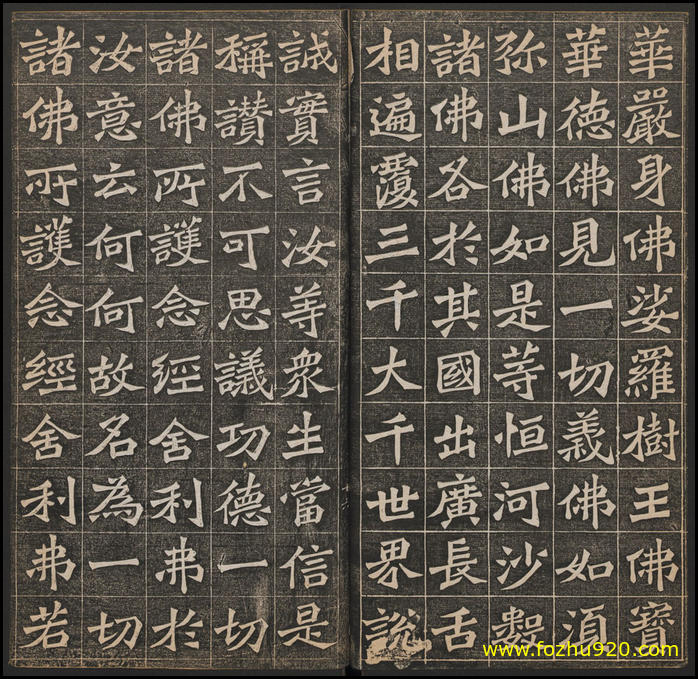 華嚴身佛娑羅樹王佛寶
華德佛見一切義佛如湏
弥山佛如是等恒河沙數
諸佛各於其國出廣長舌
相遍覆三千大千世界說
誠實言汝等衆生當信是
稱讃不可思議功德一切
諸佛所護念經舍利弗於
汝意云何何故名為一切
諸佛所護念經舍利弗若
www.fozhu920.com